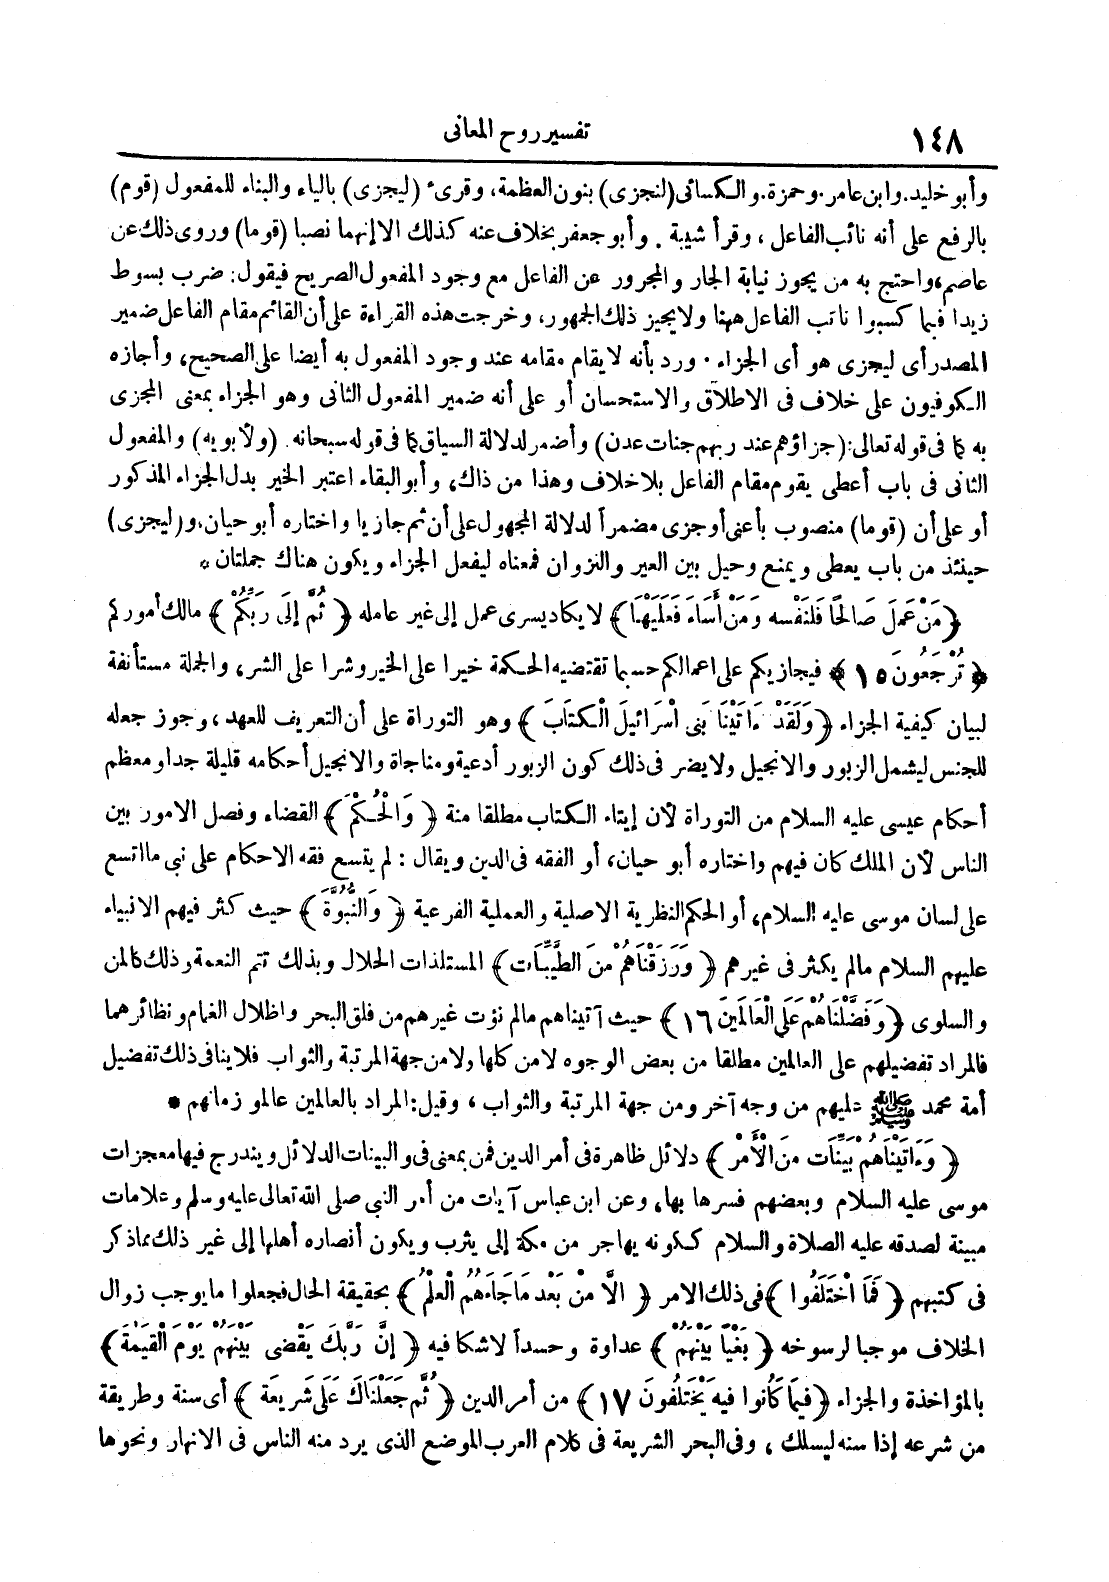 ١٤٨
تفسير روح المعانى
وأبو خليد. وابن عامر. وحمزة. والكسائى (لنجزى) بنون العظمة، وقرىء (ليجزى) بالياء والبناء للمفعول (قوم)
بالرفع على أنه نائب الفاعل، وقرأ شيبة. وأبو جعفر بخلاف عنه كذلك الا إنهما نصبا (قوما) وروى ذلك عن
عاصم، واحتج به من يجوز نيابة الجار والمجرور عن الفاعل مع وجود المفعول الصريح فيقول: ضرب بسوط
زيدا فبما كسبوا نائب الفاعل ههنا ولا يجيز ذلك الجمهور، وخرجت هذه القراءة على أن القائم مقام الفاعل ضمير
المصدر أى ليجزى هو أى الجزاء. ورد بأنه لا يقام مقامه عند وجود المفعول به أيضا على الصحيح، وأجازه
الكوفيون على خلاف فى الاطلاق والاستحسان أو على أنه ضمير المفعول الثانى وهو الجزاء بمعنى المجزى
به كما فى قوله تعالى: (جزاؤهم عند ربهم جنات عدن) وأضمر لدلالة السياق كما فى قوله سبحانه. (ولأبويه) والمفعول
الثانى فى باب أعطى يقوم مقام الفاعل بلا خلاف وهذا من ذاك، وأبو البقاء اعتبر الخير بدل الجزاء المذكور
أو على أن (قوما) منصوب بأعنى أو جزى مضمراً لدلالة المجهول على أن ثم جازيا واختاره أبو حيان، و(ليجزى)
حينئذ من باب يعطى ويمنع وحيل بين العير والنزوان فمعناه ليفعل الجزاء ويكون هناك جملتان *
﴿مَنْ عَمَلَ صَالحًا فَلنَفْسه وَمَنْ أَسَاءَ فَعَلَيْهَا﴾ لا يكاد يسرى عمل إلى غير عامله ﴿ثُمَّ إلَى رَبِّكُمْ﴾ مالك أموركم
﴿تُرْجَعُونَ ١٥﴾ فيجازيكم على اعمالكم حسبما تقتضيه الحكمة خيرا على الخير وشرا على الشر، والجملة مستأنفة
لبيان كيفية الجزاء ﴿وَلَقَدْ ءَاتَيْنَا بَنى اسْرَائيلَ الْكتَابَ﴾ وهو التوراة على أن التعريف للعهد، وجوز جعله
للجنس ليشمل الزبور والانجيل ولا يضر فى ذلك كون الزبور أدعية ومناجاة والانجيل أحكامه قليلة جدا ومعظم
أحكام عيسى عليه السلام من التوراة لأن إيتاء الكتاب مطلقا منة ﴿وَالْحُكْمَ﴾ القضاء وفصل الامور بين
الناس لأن الملك كان فيهم واختاره أبو حيان، أو الفقه فى الدين ويقال: لم يتسع فقه الاحكام على نبى ما اتسع
على لسان موسى عليه السلام، أو الحكم النظرية الاصلية والعملية الفرعية ﴿وَالنُّبُوَّةَ﴾ حيث كثر فيهم الانبياء
عليهم السلام مالم يكثر فى غيرهم ﴿وَرَزَقْنَاهُمْ منَ الطَّيِّبَات﴾ المستلذات الحلال وبذلك تتم النعمة وذلك كالمن
والسلوى ﴿وَفَضَّلْنَاهُمْ عَلَى الْعَالَمينَ ١٦﴾ حيث آتيناهم مالم نؤت غيرهم من فلق البحر واظلال الغمام ونظائرهما
فالمراد تفضيلهم على العالمين مطلقا من بعض الوجوه لا من كلها ولا من جهة المرتبة والثواب فلا ينافى ذلك تفضيل
أمة محمد ﷺ عليهم من وجه آخر ومن جهة المرتبة والثواب، وقيل: المراد بالعالمين عالمو زمانهم *
﴿وَءَاتَيْنَاهُمْ بَيِّنَات منَ الْأَمْر﴾ دلائل ظاهرة فى أمر الدين فمن بمعنى فى والبينات الدلائل ويندرج فيها معجزات
موسى عليه السلام وبعضهم فسرها بها، وعن ابن عباس آيات من أمر النبى صلى الله تعالى عليه وسلم وعلامات
مبينة لصدقه عليه الصلاة والسلام ككونه يهاجر من مكة إلى يثرب ويكون أنصاره أهلها إلى غير ذلك مما ذكر
فى كتبهم ﴿فَمَا اخْتَلَفُوا﴾ فى ذلك الامر ﴿الَّا منْ بَعْد مَا جَاءَهُمُ الْعلْمُ﴾ بحقيقة الحال فجعلوا ما يوجب زوال
الخلاف موجبا لرسوخه ﴿بَغْيًا بَيْنَهُمْ﴾ عداوة وحسداً لا شكا فيه ﴿إنَّ رَبَّكَ يَقْضى بَيْنَهُمْ يَوْمَ الْقيَامَة﴾
بالمؤاخذة والجزاء ﴿فيمَا كَانُوا فيه يَخْتَلفُونَ ١٧﴾ من أمر الدين ﴿ثُمَّ جَعَلْنَاكَ عَلَى شَريعَة﴾ أى سنة وطريقة
من شرعه إذا سنه ليسلك، وفى البحر الشريعة فى كلام العرب الموضع الذى يرد منه الناس فى الانهار ونحوها